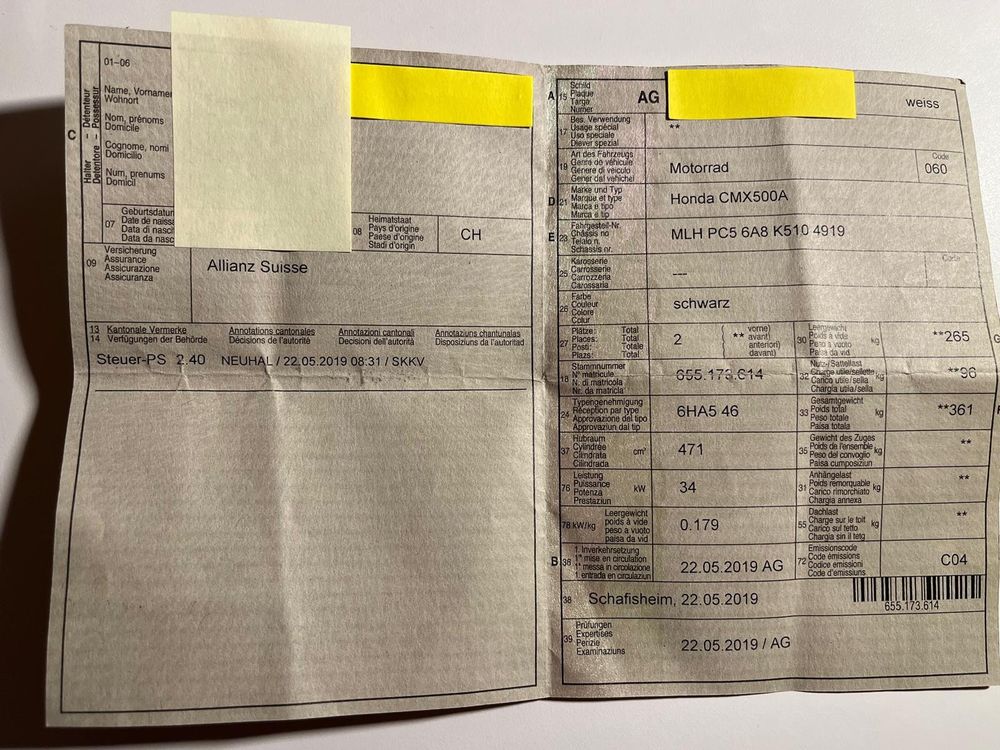 C
Halter – Détenteur
Detentore – Possessur
01–06
Name, Vornamen
Wohnort
Nom, prénoms
Domicile
Cognome, nomi
Domicilio
Num, prenums
Domicil
07
Geburtsdatum
Date de naiss
Data di nasc
Data da nasc
08
Heimatstaat
Pays d'origine
Paese d'origine
Stadi d'origin
CH
09
Versicherung
Assurance
Assicurazione
Assicuranza
Allianz Suisse
13 Kantonale Vermerke Annotations cantonales Annotazioni cantonali Annotaziuns chantunalas
14 Verfügungen der Behörde Décisions de l'autorité Decisioni dell'autorità Disposiziuns da l'autoritad
Steuer-PS 2.40 NEUHAL / 22.05.2019 08:31 / SKKV
A 15
Schild
Plaque
Targa
Numer
AG
weiss
17
Bes. Verwendung
Usage spécial
Uso speciale
Diever spezial
**
19
Art des Fahrzeugs
Genre de véhicule
Genere di veicolo
Gener dal vehichel
Motorrad
Code
060
D 21
Marke und Typ
Marque et type
Marca e tipo
Marca e tip
Honda CMX500A
E 23
Fahrgestell-Nr.
Châssis no
Telaio n.
Schassis nr.
MLH PC5 6A8 K510 4919
25
Karosserie
Carrosserie
Carrozzeria
Carossaria
---
Code
26
Farbe
Couleur
Colore
Colur
schwarz
27
Plätze: Total
Places: Total
Posti: Totale
Plazs: Total
2
( ** vorne)
avant)
anteriori)
davant)
30
Leergewicht
Poids à vide
Peso a vuoto
Paisa da vid
kg
**265
G
18
Stammnummer
N° matricule
N. di matricola
Nr. da matricla
655.173.614
32
Nutz-/Sattellast
Charge utile/sellette
Carico utile/sella
Chargia utila/sella
kg
**96
24
Typengenehmigung
Réception par type
Approvazione del tipo
Approvaziun dal tip
6HA5 46
33
Gesamtgewicht
Poids total
Peso totale
Paisa totala
kg
**361
37
Hubraum
Cylindrée
Cilindrata
Cilindrada
cm³
471
35
Gewicht des Zuges
Poids de l'ensemble
Peso del convoglio
Paisa cumposiziun
kg
**
76
Leistung
Puissance
Potenza
Prestaziun
kW
34
31
Anhängelast
Poids remorquable
Carico rimorchiato
Chargia annexa
kg
**
78 kW/kg
Leergewicht
poids à vide
peso a vuoto
paisa da vid
0.179
55
Dachlast
Charge sur le toit
Carico sul tetto
Chargia sin il tetg
kg
**
B 36
1. Inverkehrsetzung
1re mise en circulation
1a messa in circolazione
1. entrada en circulaziun
22.05.2019 AG
72
Emissionscode
Code émissions
Codice emissioni
Code d'emissiuns
C04
38
Schafisheim, 22.05.2019
655.173.614
39
Prüfungen
Expertises
Perizie
Examinaziuns
22.05.2019 / AG